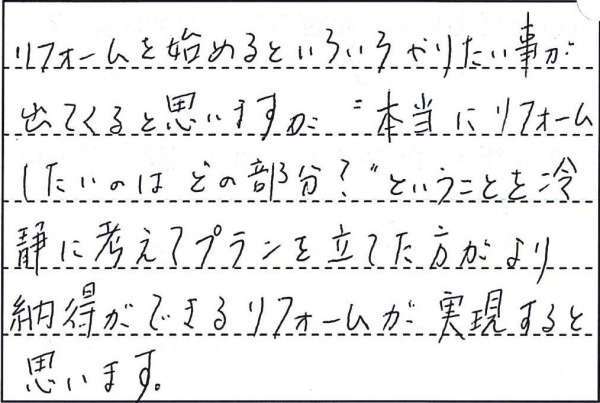 リフォームを始めるといろいろやりたい事が
出てくると思いますが〝本当にリフォーム
したいのはどの部分？〟ということを冷
静に考えてプランを立てた方がより
納得ができるリフォームが実現すると
思います。